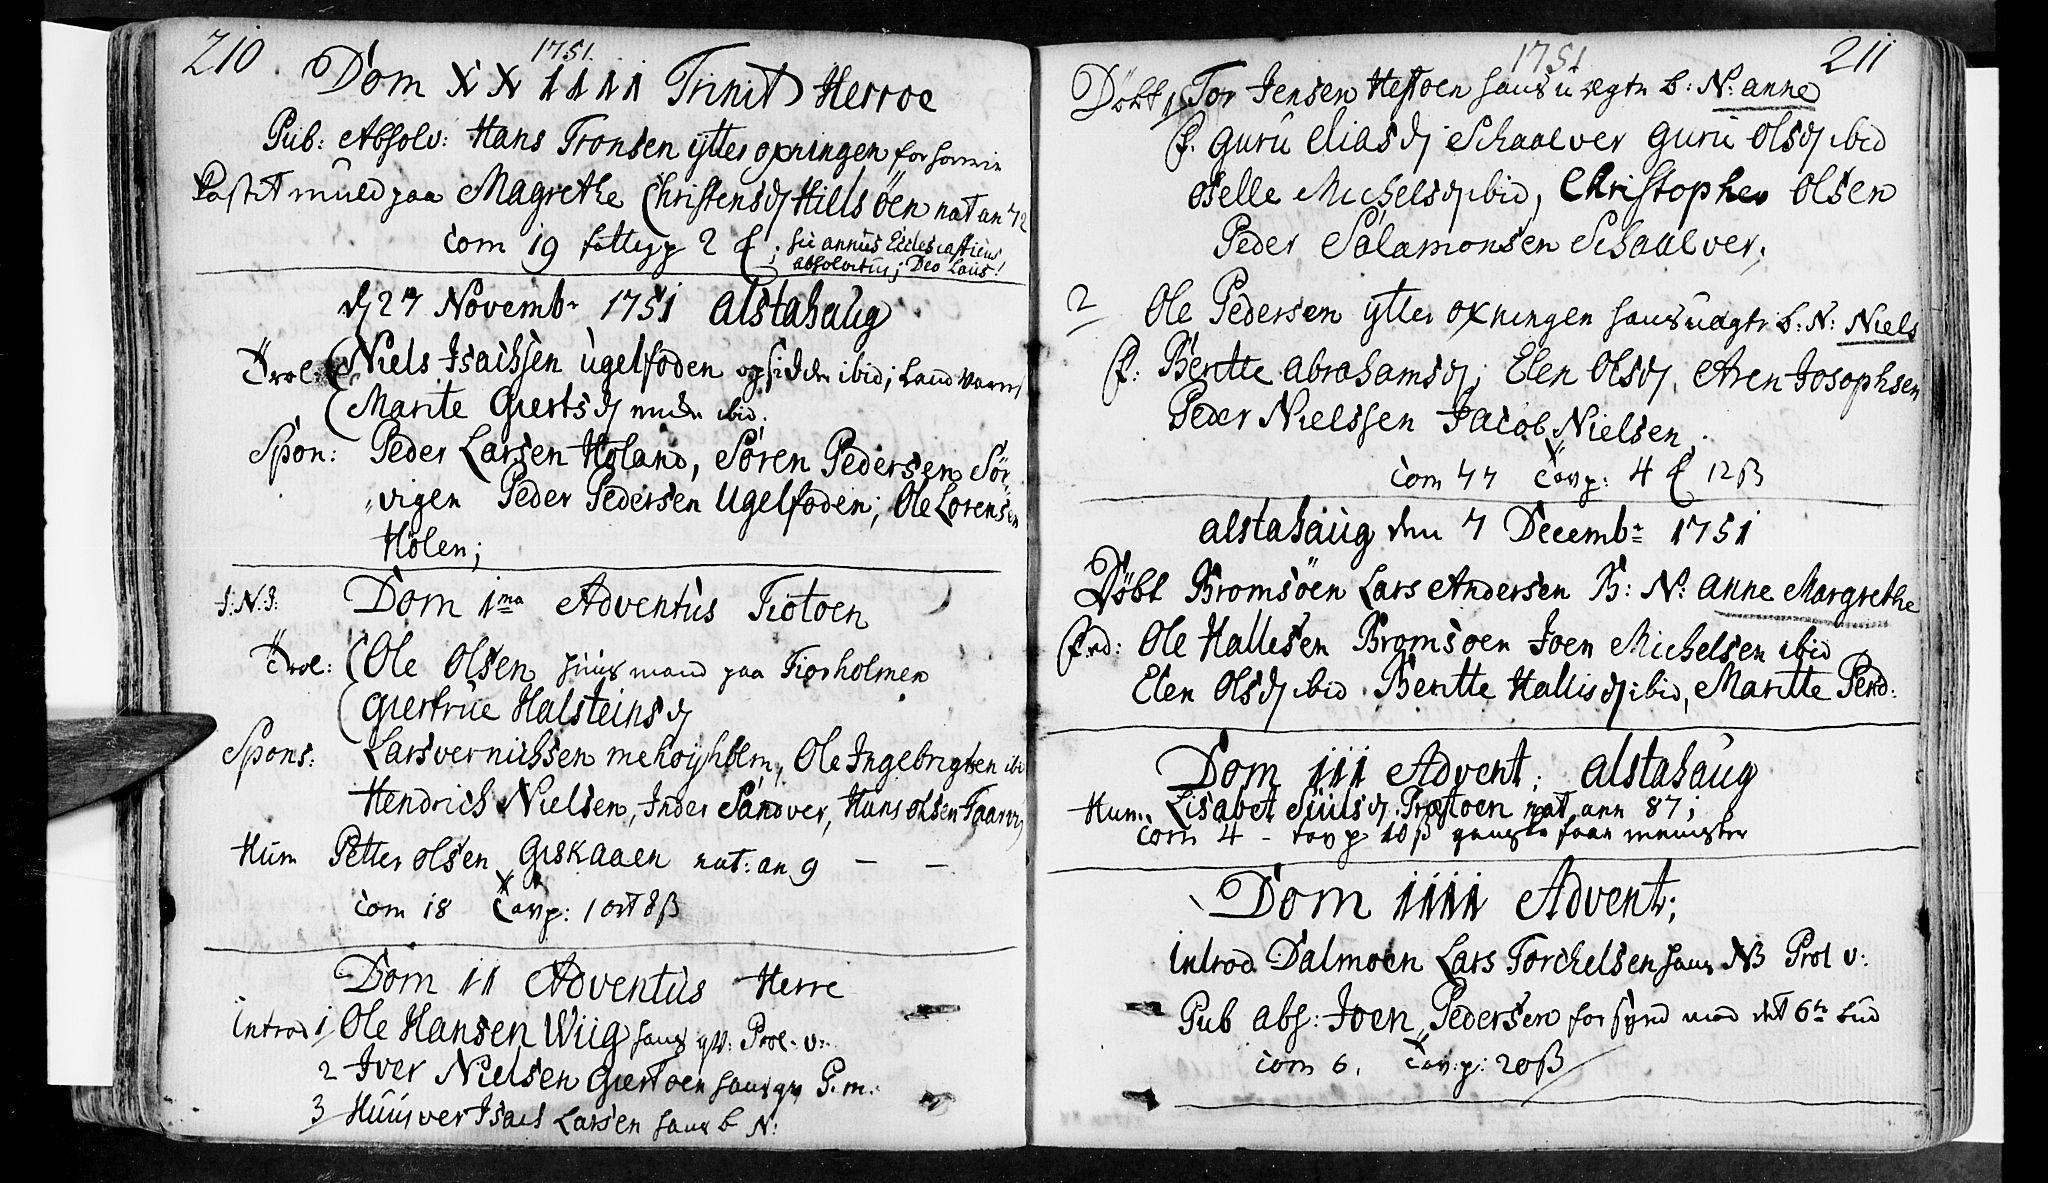 210
1751.
Dom XXIIII Trinit Herroe
Pub: Absolv: Hans Tronsen ytter oxningen for
Kastet muld paa Magrethe Christensd Hillsöen nat an 72
Com 19 fattigp 2 ; hic annus Ecclesiasticus
absolvitur; Deo Laus!
d 27 Novembr 1751 alstahaug
Trol. Niels Isachsen ugelfoden opsidder ibid; Land
Marite Giertsd ibid;
Spon: Peder Larsen Holand, Sören Pedersen Sör
vigen Peder Pedersen Ugelfoden; Ole Lorensen
Holen;
I:N:J: Dom 1ma Adventus Tiotoen
Trol: Ole Olsen huusmand paa Tiorholmen
Giertrue Halsteinsd
Spons: Lars vernichsen mehoyholm, Ole Ingebrigtsen ibi
Hendrich Nielsen, Inder Sandver, Hans Olsen
Hum Petter Olsen Giskaaen nat: an 9 — —
Com 18 Tavp: 1 ort 8 ß
Dom II Adventus Herre
Introd 1 Ole Hansen Wiig hans qv: Prol. v:
2 Iver Nielsen Giertoen hans qv P. m:
3 Huusver Isach Larsen hans b N:
1751
211
Döbt 1 Tor Jensen Hestoen hans u ægte b: N: anne
f. Guru Eliasd Schaalver Guru Olsd ibid
Michelsd ibid, Christopher Olsen
Peder Salamonsen Schaalver;
2 Ole Pedersen ytter oxningen hans uægte b: N: Niels
f: Beritte abrahamsd; Elen Olsd, Aren Josophsen
Peder Nielssen Jacob Nielsen;
Com 47 Tavp: 4 12 ß
alstahaug den 7 Decembr 1751
Döbt Bromsöen Lars Andersen B: N: anne Margrethe
Ole Hallesen Bromsoen Joen Michelsen ibid
Elen Olsd ibid. Beritte Hallisd ibid, Maritte Perd:
Dom III Advent: alstahaug
Hum. Lisabet Siulsd nat ann 87;
Com 4 - tavp 10 ß faae mennister
Dom IIII Advent;
Introd Dalmoen Lars Torchelsen hans NB Prol v:
Pub abs: Joen Pedersen for synd mod det 6te bud
Com 6. Tav:p: 20 ß